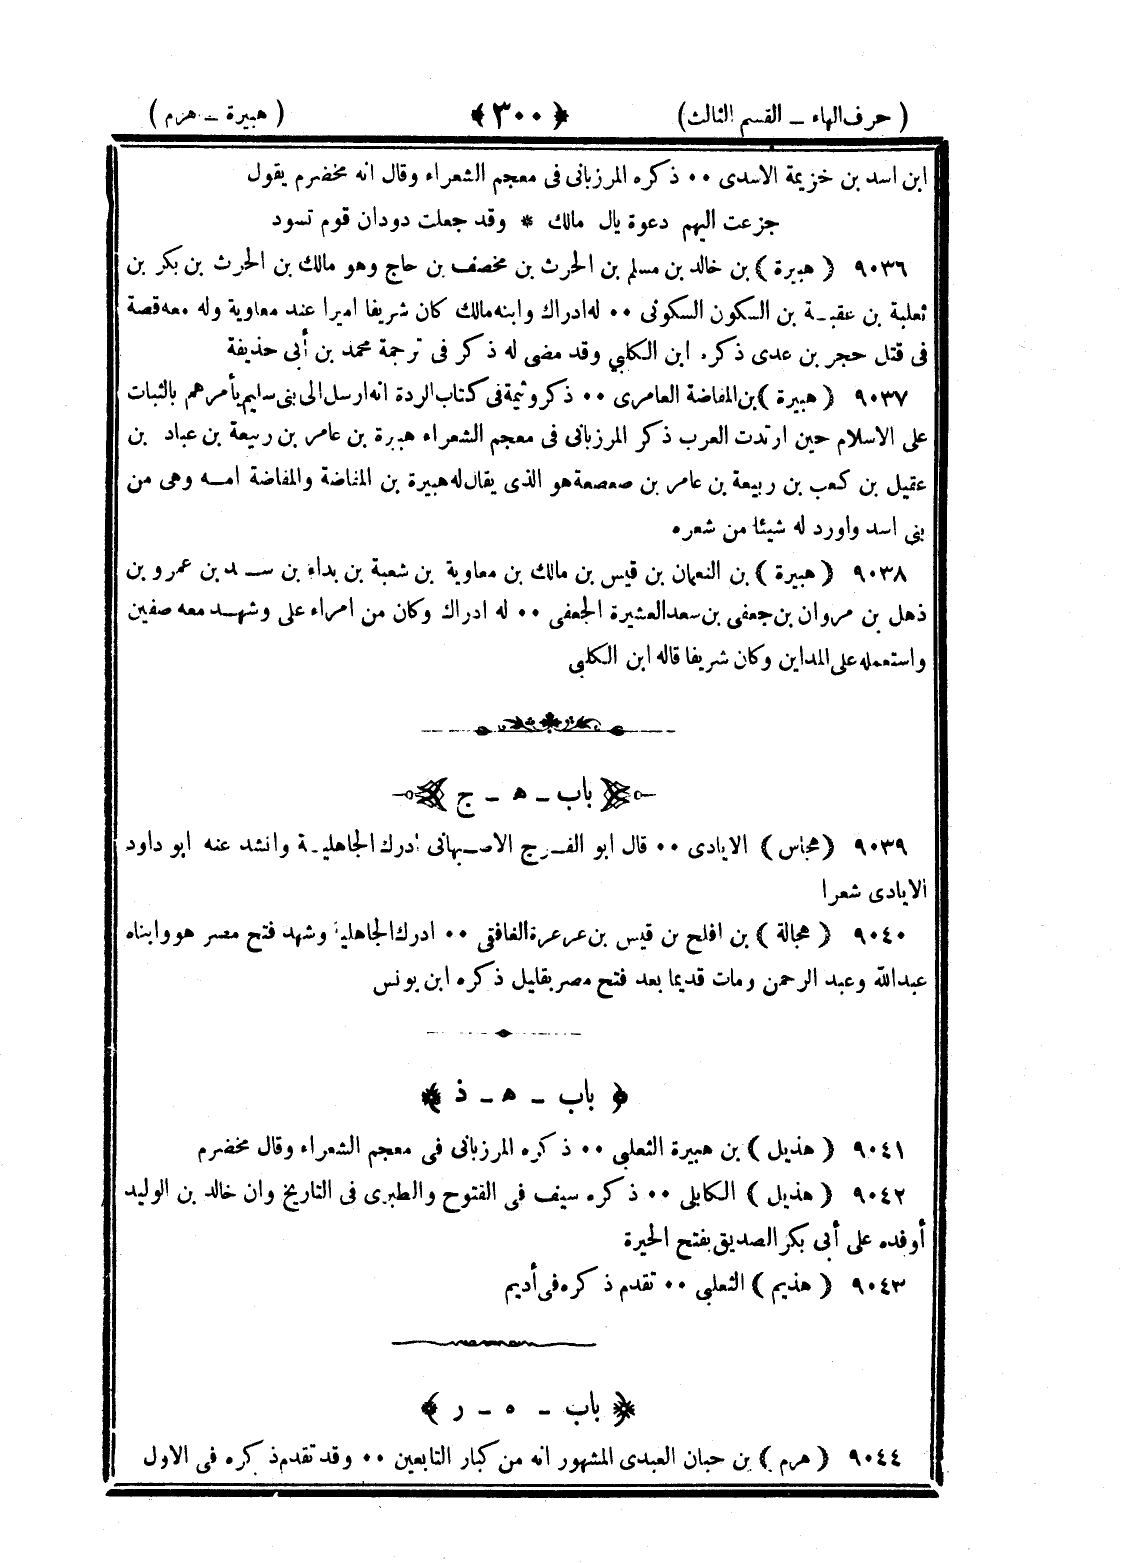 ( حرف الهاء ـ القسم الثالث) ﴿ ٣٠٠ ﴾ ( هبيرة ـ هرم )
ابن اسد بن خزيمة الاسدى ٠٠ ذكره المرزبانى فى معجم الشعراء وقال انه مخضرم يقول
جزعت اليهم دعوة يال مالك * وقد جعلت دودان قوم تسود
٩٠٣٦ ( هبيرة ) بن خالد بن مسلم بن الحرث بن مخصف بن حاج وهو مالك بن الحرث بن بكر بن
ثعلبة بن عقبـة بن السكون السكونى ٠٠ له ادراك وابنه مالك كان شريفا اميرا عند معاوية وله معه قصة
فى قتل حجر بن عدى ذكره ابن الكلبي وقد مضى له ذكر فى ترجمة محمد بن أبي حذيفة
٩٠٣٧ ( هبيرة ) بن المفاضة العامرى ٠٠ ذكر وثيمة فى كتاب الردة انه ارسل الى بنى سليم يأمرهم بالثبات
على الاسلام حين ارتدت العرب ذكر المرزبانى فى معجم الشعراء هبيرة بن عامر بن ربيعة بن عباد بن
عقيل بن كعب بن ربيعة بن عامر بن صعصعة هو الذى يقال له هبيرة بن المفاضة والمفاضة امـه وهى من
بني اسد واورد له شيئا من شعره
٩٠٣٨ ( هبيرة ) بن النعمان بن قيس بن مالك بن معاوية بن شعبة بن بداء بن سـعد بن عمرو بن
ذهل بن مروان بن جعفى بن سعد العشيرة الجعفى ٠٠ له ادراك وكان من امراء على وشهـد معه صفين
واستعمله على المداين وكان شريفا قاله ابن الكلبي
باب ـ هـ ـ ج
٩٠٣٩ ( هجاس ) الايادى ٠٠ قال ابو الفـرج الاصـبهانى ادرك الجاهليـة وانشد عنه ابو داود
الايادى شعرا
٩٠٤٠ ( هجالة ) بن افلح بن قيس بن عرعرة الغافقى ٠٠ ادرك الجاهلية وشهد فتح مصر هو وابناه
عبدالله وعبد الرحمن ومات قديما بعد فتح مصر بقليل ذكره ابن يونس
﴿ باب ـ هـ ـ ذ ﴾
٩٠٤١ ( هذيل ) بن هبيرة الثعلبي ٠٠ ذكره المرزبانى فى معجم الشعراء وقال مخضرم
٩٠٤٢ ( هذيل ) الكابلى ٠٠ ذكره سيف فى الفتوح والطبرى فى التاريخ وان خالد بن الوليد
أوفده على أبى بكر الصديق بفتح الحيرة
٩٠٤٣ ( هذيم ) الثعلبى ٠٠ تقدم ذكره فى أديم
﴿ باب ـ ه ـ ر ﴾
٩٠٤٤ ( هرم ) بن حبان العبدى المشهور انه من كبار التابعين ٠٠ وقد تقدم ذكره فى الاول